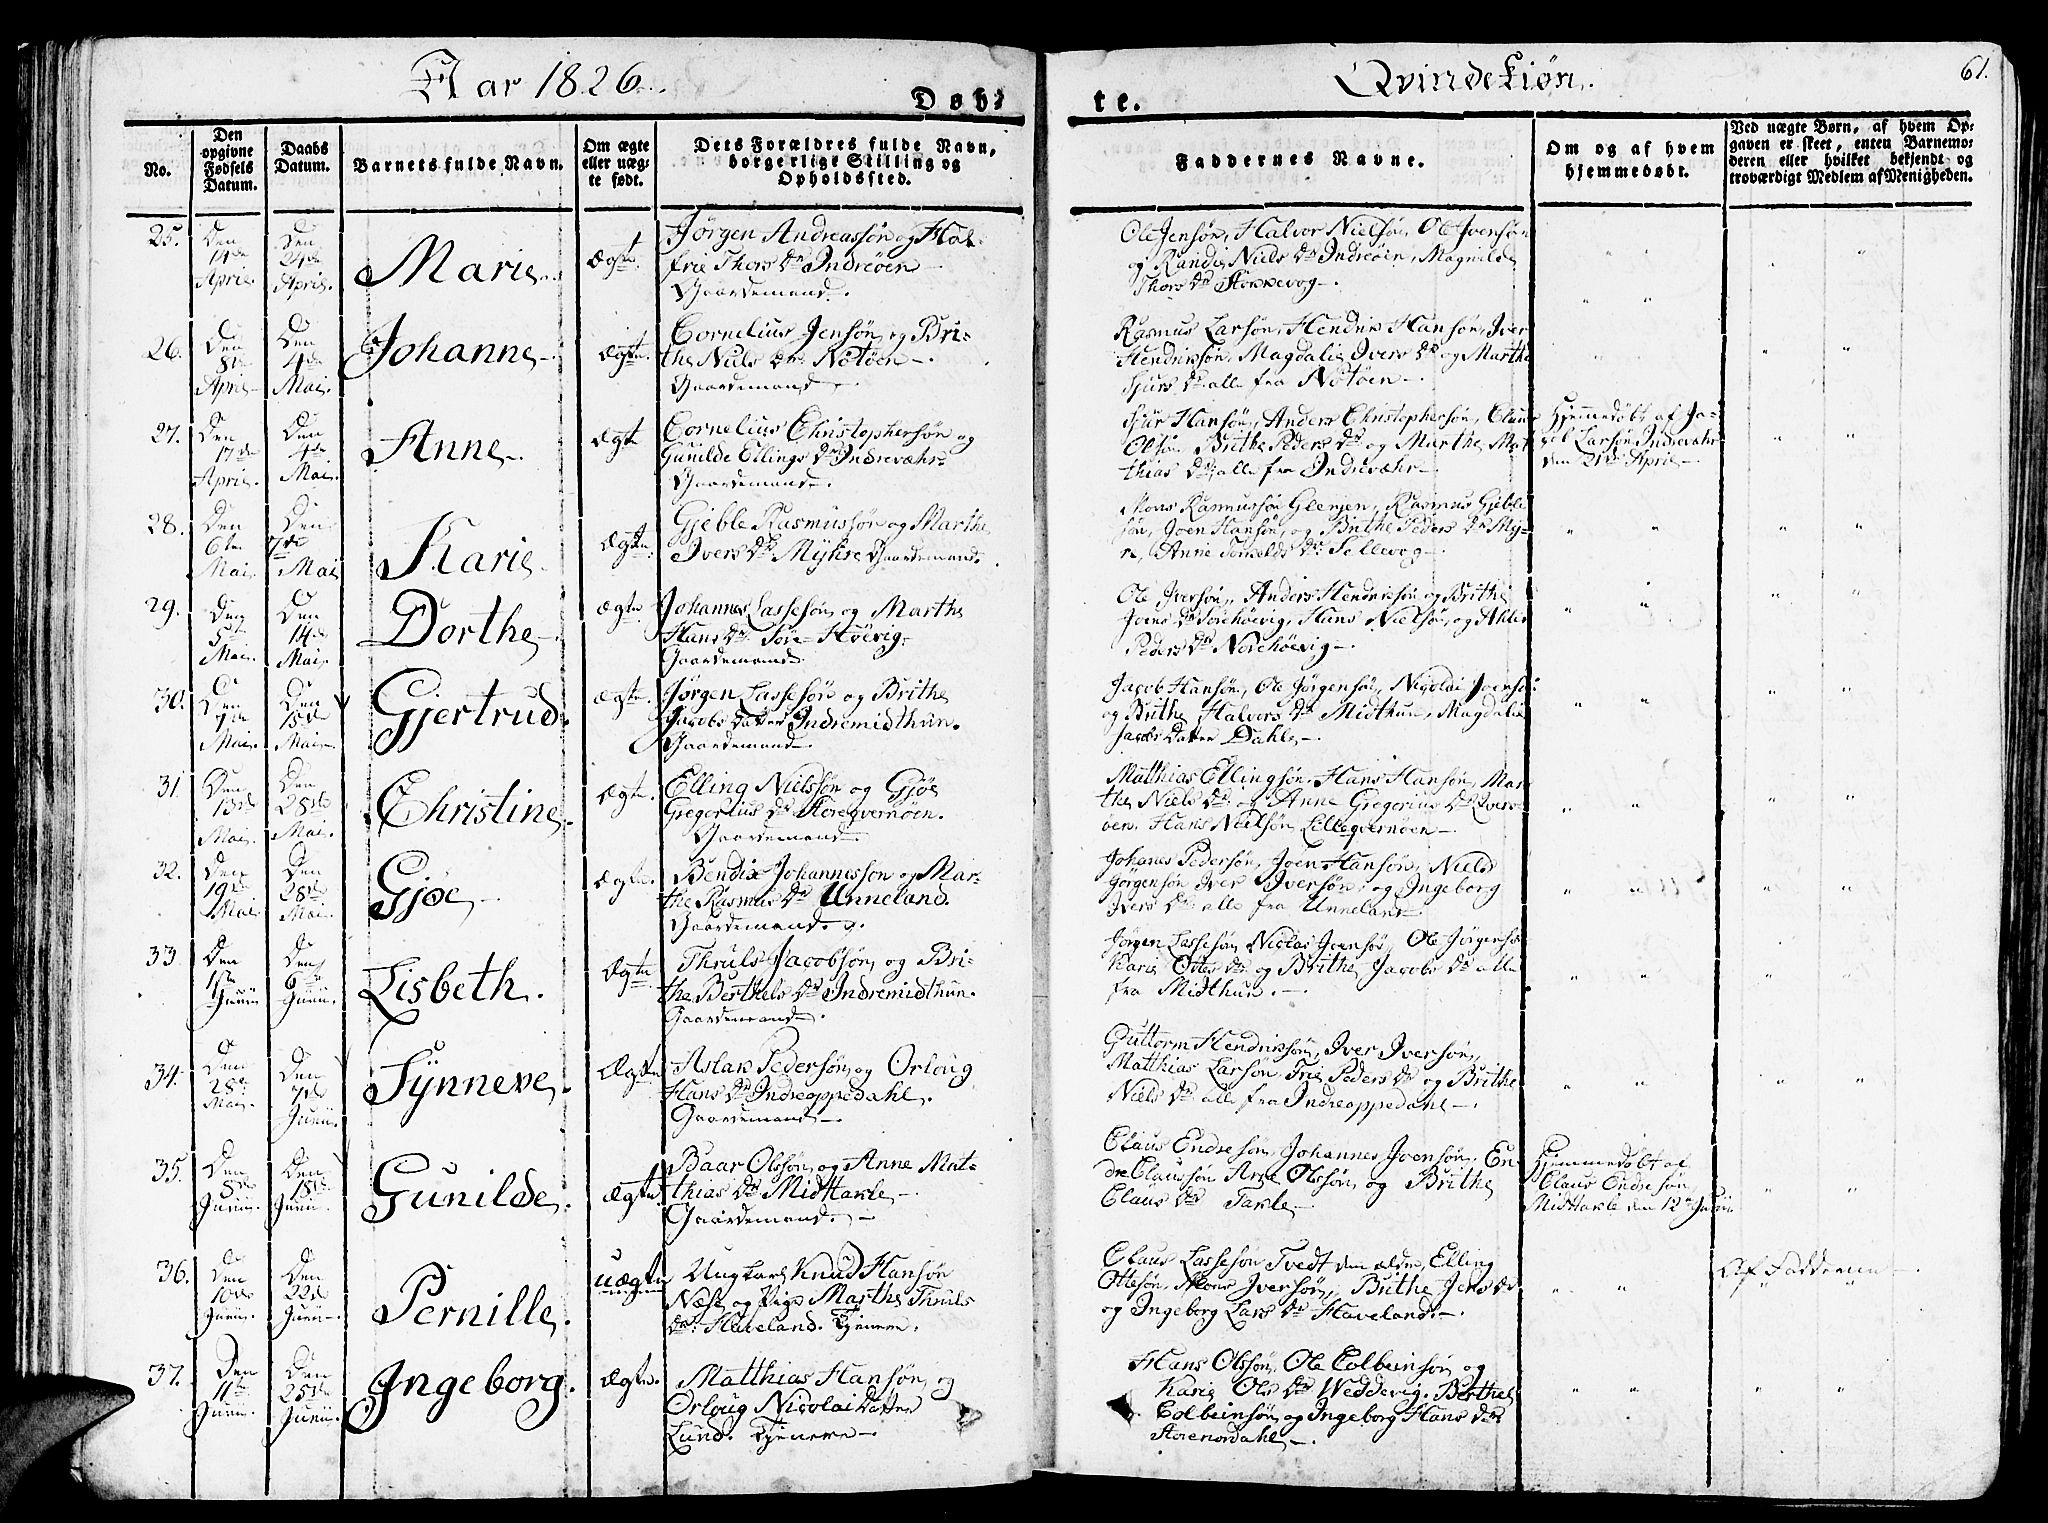 Aar 1826.
Døb-
te.
Qvindekiøn.
61.
No.
Den opgivne Fødsels Datum.
Daabs Datum.
Barnets fulde Navn.
Om ægte eller uæg- te født.
Dets Forældres fulde Navn, borgerlige Stilling og Opholdssted.
Faddernes Navne.
Om og af hvem hjemmedøbt.
Ved uægte Børn, af hvem Op- gaven er skeet, enten Barnemo- deren eller hvilket bekjendt og troværdigt Medlem af Menigheden.
25.
Den
Den 24de
April.
April.
Marie.
Ægte.
Jørgen Andreassøn og Hal-
frie Thors Dr Indreøen
Gaardemand.
Ole Jensøn, Halvor Nielsøn, Ole Iversøn
og Randi Niels Dr Indreøen, Magnilde
Thors Dr Stokkevog.
26.
Den 8de
April
Den 4de
Mai
Johanne
Ægte.
Cornelius Jensøn og Bri-
the Niels Dr. Notøen
Gaardemand
Rasmus Larsøn, Hendrik Hansøn, Iver
Hendriksøn, Magdali Ivers Dr og Marthe
Sjurs Dr alle fra Notøen
27.
Den 17de
April.
Den 4de
Mai.
Anne
Ægte
Cornelius Christophersøn og
Gunilde Ellings Dr Indrevæhr
Gaardemand.
Sjur Hansøn, Anders Christophersøn, Claus
Olsøn Brithe Peders Dr og Marthe Mat
thias Dr; alle fra Indrevæhr
Hjemmedøbt af Ja-
Larsøn Indrevæhr
den 21de April
28.
Den 6te
Mai.
Den 7de
Mai
Karie
Ægte.
Gjeble Rasmussøn og Marthe
Ivers Dr Mykre Gaardemand.
Mons Rasmussøn Glenjen, Rasmus Gjeble
søn, Joen Hansøn, og Brithe Peders Dr Myk-
re, Anne Dr Sellevog
29.
Den 5te
Mai.
Den 14de
Mai.
Dorthe
Ægte
Johannes Lassesøn og Marthe
Hans Dr Søre-Høevig
Gaardemand
Ole Iversøn, Anders Hendriksøn og Brithe
Joens Dr Sørehøevig, Hans Nielsøn, og
Peders Dr Norehøevig
30.
Den 7de
Mai.
Den 15de
Mai
Gjertrud.
Ægte.
Jørgen Lassesøn og Brithe
Jacobs Datter Indremidthun.
Gaardemand
Jacob Hansøn, Ole Jørgensøn, Nicolai Joensøn
og Brithe Halvors Dr Midthun, Magdali
Jacobs Datter Dahle
31.
Den 13de
Mai.
Den 28de
Mai.
Christine.
Ægte.
Elling Nielsøn og Gjøe
Gregorius Dr Storeqvernøen.
Gaardemand
Matthias Ellingsøn, Hans Hansøn, Mar-
the Niels Dr og Anne Gregorius Dr Qvern-
øen. Hans Nielsøn Lilleqvernøen
32.
Den 19de
Mai
Den 28de
Mai
Gjøe
Ægte.
Bendix Johannissøn og Mar-
the Rasmus Dr Unneland.
Gaardemand
Johanes Pedersøn, Joen Hansøn, Niels
Jørgensøn Iver Iversøn, og Ingeborg
Ivers Dr alle fra Unneland
33.
Den 1te
Junii
Den 6te
Junii.
Lisbeth.
Ægte
Thruls Jacobsøn og Bri-
the Berthels Dr Indremidthun.
Gaardemand.
Jørgen Lassesøn, Nicolai Joensøn, Ole Jørgensøn
Karie Oles Dr og Brithe Jacobs Dr alle
fra Midthun.
34.
Den 28de
Mai.
Den 7de
Junii.
Synneve.
Ægte
Aslak Pedersøn og Orloug
Hans Dr Indreoppedahl.
Gaardemand
Guttorm Hendriksøn, Iver Iversøn,
Matthias Larsøn, Peders Dr og Brithe
Niels Dr alle fra Indreoppedahl.
35.
Den 8de
Junii.
Den 18de
Junii.
Gunilde.
Ægte
Baar Olssøn, og Anne Mat-
thias Dr MidHakle
Gaardemand.
Claus Endresøn, Johannes Joensøn, En-
dre Claussøn Arne Olssøn, og Brithe
Claus Dr Takle
Hjemmedøbt af
Claus Endresøn
MidHakle den 12te Junii
36.
Den 10de
Junii.
Den 22de
Junii
Pernille.
uægte
Ungkarl Knud Hansøn
Næse og Pige Marthe Thruls
Dr. Haveland. Tjenere.
Claus Lassesøn Tvedt den ældre, Elling
Ottesøn, Mons Iversøn, Brithe Jens Dr
og Ingeborg Lars Dr Haveland.
Af Fadderne
37.
Den 11te
Junii.
Den 25de
Junii.
Ingeborg.
Ægte.
Matthias Hansøn, og
Orloug Nicolai Datter
Lund. Tjenere
Hans Olssøn, Ole Colbeinsøn og
Karie Ols Dr Weddevig. Berthel
Colbeinsøn og Ingeborg Hans Dr
Storenordahl